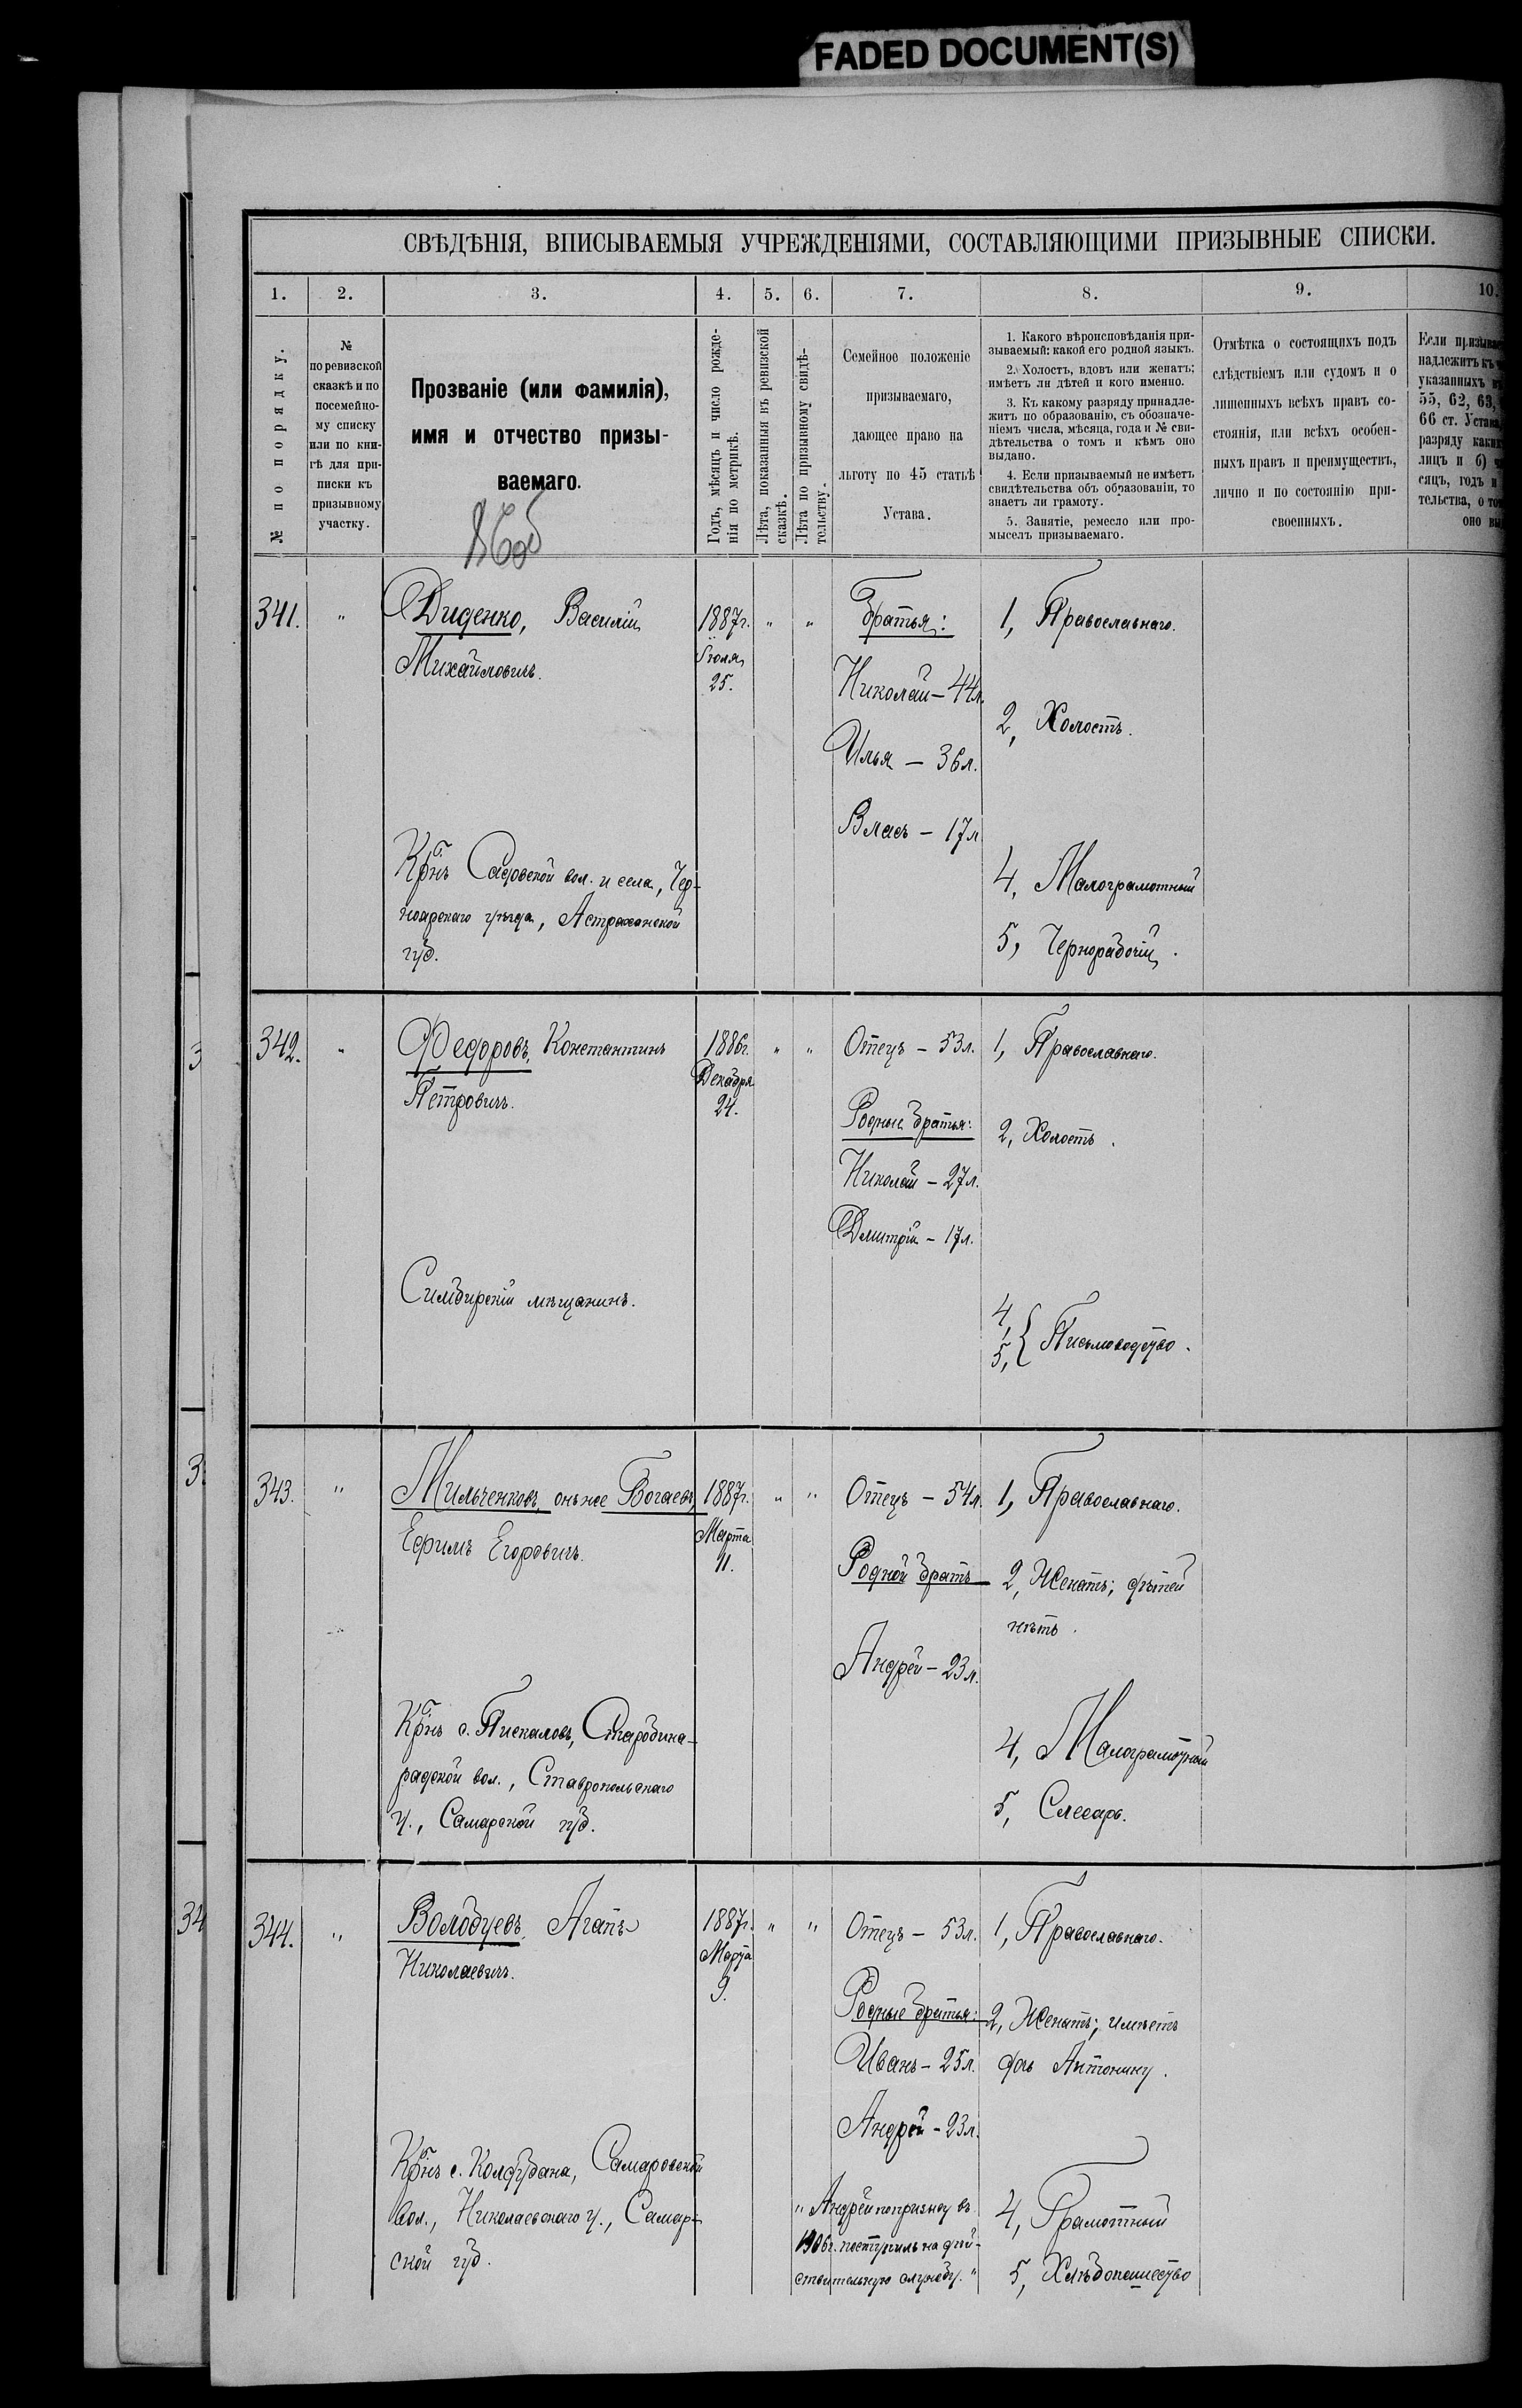 FADED DOCUMENT(S)
СВѢДѢНІЯ, ВПИСЫВАЕМЫЯ УЧРЕЖДЕНІЯМИ, СОСТАВЛЯЮЩИМИ ПРИЗЫВНЫЕ СПИСКИ.
1. 2. 3. 4. 5. 6. 7. 8. 9. 10.
№ по порядку.
№
по ревизской
сказкѣ и по
посемейно-
му списку
или по кни-
гѣ для при-
писки къ
призывному
участку.
Прозваніе (или фамилія),
имя и отчество призы-
ваемаго.
Годъ, мѣсяцъ и число рожде-
нія по метрикѣ.
Лѣта, показанныя въ ревизской
сказкѣ.
Лѣта по призывному свидѣ-
тельству.
Семейное положеніе
призываемаго,
дающее право на
льготу по 45 статьѣ
Устава.
1. Какого вѣроисповѣданія при-
зываемый: какой его родной языкъ.
2. Холостъ, вдовъ или женатъ;
имѣетъ ли дѣтей и кого именно.
3. Къ какому разряду принадле-
житъ по образованію, съ обозначе-
ніемъ числа, мѣсяца, года и № сви-
дѣтельства о томъ и кѣмъ оно
выдано.
4. Если призываемый не имѣетъ
свидѣтельства объ образованіи, то
знаетъ ли грамоту.
5. Занятіе, ремесло или про-
мыселъ призываемаго.
Отмѣтка о состоящихъ подъ
слѣдствіемъ или судомъ и о
лишенныхъ всѣхъ правъ со-
стоянія, или всѣхъ особен-
ныхъ правъ и преимуществъ,
лично и по состоянію при-
своенныхъ.
Если призывае
надлежитъ къ
указанныхъ
55, 62, 63,
66 ст. Устава
разряду каки
лицъ и б)
сяцъ, годъ и
тельства, о то
оно вы
341. " Диденко, Василій
Михайловичъ.
Крнъ Садовской вол. и села, Чер-
ноярскаго уѣзда, Астраханской
губ.
1887г.
Іюля
25.
" "
Братья:
Николай – 44л.
Илья – 36л.
Власъ – 17л
1, Православнаго.
2, Холостъ.
4, Малограмотный
5, Чернорабочій.
342. " Федоровъ, Константинъ
Петровичъ.
Симбирскій мѣщанинъ.
1886г.
Декабря
24.
" "
Отецъ – 53л.
Родные братья:
Николай – 27л.
Дмитрій – 17л.
1, Православнаго.
2, Холостъ.
4,
5, { Письмоводство.
343. " Мильченковъ, онъ же Богаевъ,
Ефимъ Егоровичъ.
Крнъ с. Пискаловъ,
вол., Ставропольскаго
у., Самарской губ.
1887г.
Марта
11.
" "
Отецъ – 54л.
Родной братъ
Андрей – 23л.
1, Православнаго.
2, Женатъ; дѣтей
нѣтъ.
4, Малограмотный
5, Слесарь.
344. " Володуевъ, Агапъ
Николаевичъ.
Крнъ с. Самаровской
вол., Николаевскаго у., Самар-
ской губ.
1887г.
Марта
9.
" "
Отецъ – 53л.
Родные братья:
Иванъ – 25л.
Андрей – 23л.
" Андрей по призыву въ
1906г. поступилъ на дѣй-
ствительную службу. "
1, Православнаго.
2, Женатъ; имѣетъ
дочь Антонину.
4, Грамотный
5, Хлѣбопашество
3
3
34